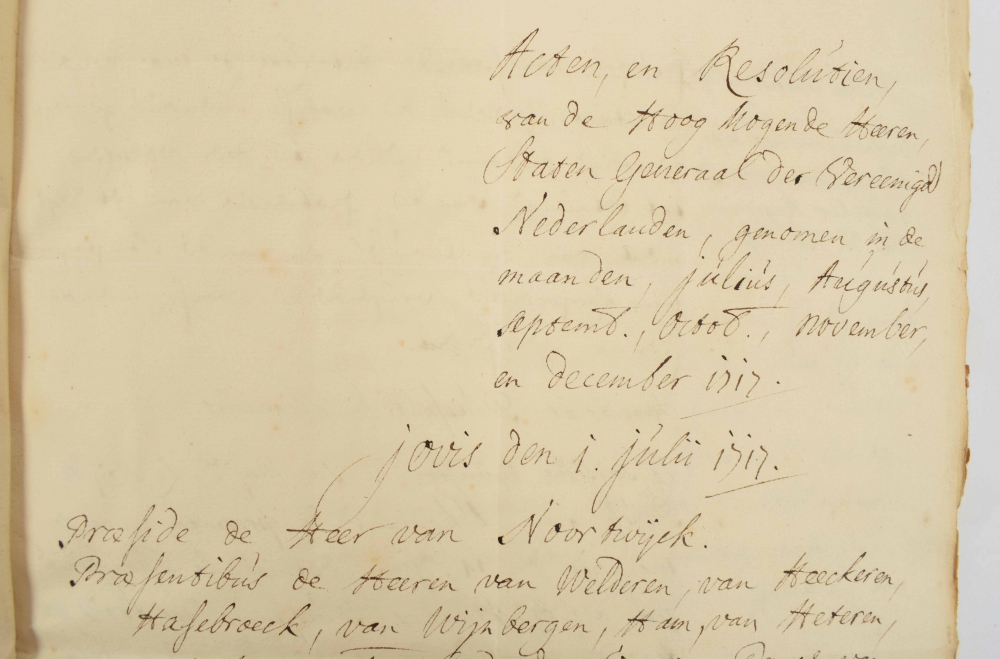 Acten, en Resolutien,
van de Hoog Mogende Heeren,
Staten Generaal der Vereenigd
Nederlanden, genomen in de
maanden, julius, Augustus,
septemb., Octob., november,
en december 1717.
jovis den 1. julii 1717.
Præside de Heer van Noortwijck.
Præsentibus de Heeren van Welderen, van Heeckeren,
Hasebroeck, van Wijnbergen, Ham, van Heteren,